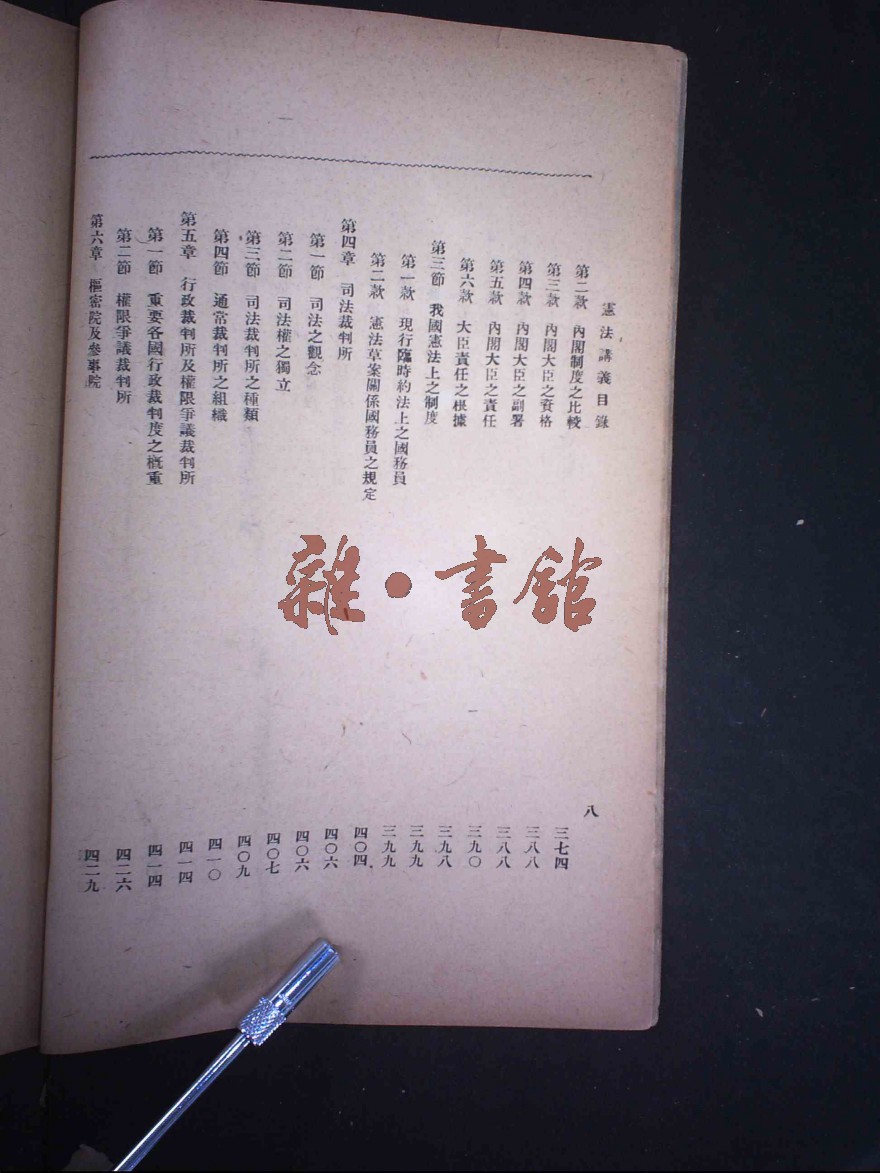 憲法講義目錄　八
第二款　內閣制度之比較　三七四
第三款　內閣大臣之資格　三八八
第四款　內閣大臣之副署　三八八
第五款　內閣大臣之責任　三九〇
第六款　大臣責任之根據　三九八
第三節　我國憲法上之制度　三九九
第一款　現行臨時約法上之國務員　三九九
第二款　憲法草案關係國務員之規定　四〇四
第四章　司法裁判所　四〇六
第一節　司法之觀念　四〇六
第二節　司法權之獨立　四〇七
第三節　司法裁判所之種類　四〇九
第四節　通常裁判所之組織　四一〇
第五章　行政裁判所及權限爭議裁判所　四一四
第一節　重要各國行政裁判度之槪重　四一四
第二節　權限爭議裁判所　四二六
第六章　樞密院及參事院　四二九
雜·書館